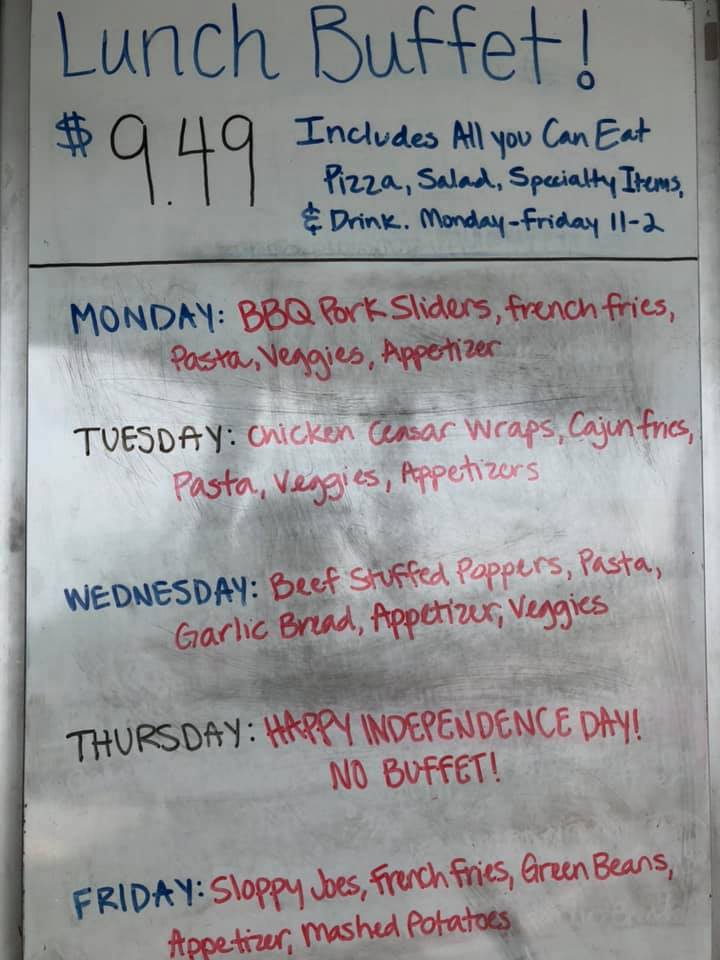 Lunch Buffet!
$9.49 Includes All you Can Eat
Pizza, Salad, Specialty Items,
& Drink. Monday-Friday 11-2
MONDAY: BBQ Pork Sliders, french fries,
Pasta, Veggies, Appetizer
TUESDAY: Chicken Ceasar Wraps, Cajun fries,
Pasta, Veggies, Appetizers
WEDNESDAY: Beef Stuffed Poppers, Pasta,
Garlic Bread, Appetizer, Veggies
THURSDAY: HAPPY INDEPENDENCE DAY!
NO BUFFET!
FRIDAY: Sloppy Joes, French Fries, Green Beans,
Appetizer, Mashed Potatoes